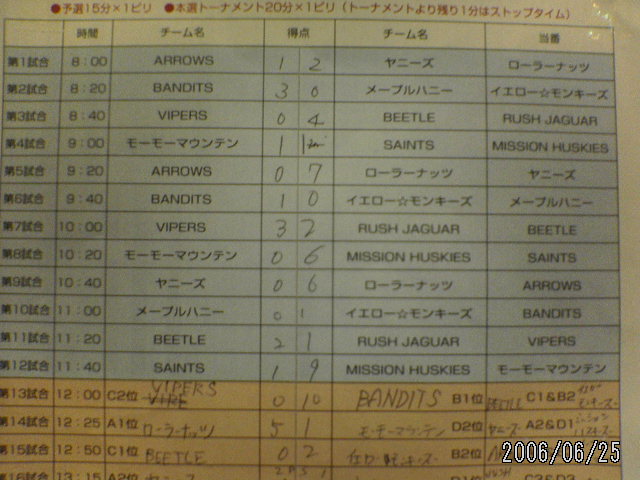 ●予選15分×1ピリ ●本選トーナメント20分×1ピリ（トーナメントより残り1分はストップタイム）
時間 チーム名 得点 チーム名 当番
第1試合 8：00 ARROWS 1 2 ヤニーズ ローラーナッツ
第2試合 8：20 BANDITS 3 0 メープルハニー イエロー☆モンキーズ
第3試合 8：40 VIPERS 0 4 BEETLE RUSH JAGUAR
第4試合 9：00 モーモーマウンテン 1 SAINTS MISSION HUSKIES
第5試合 9：20 ARROWS 0 7 ローラーナッツ ヤニーズ
第6試合 9：40 BANDITS 1 0 イエロー☆モンキーズ メープルハニー
第7試合 10：00 VIPERS 3 2 RUSH JAGUAR BEETLE
第8試合 10：20 モーモーマウンテン 0 6 MISSION HUSKIES SAINTS
第9試合 10：40 ヤニーズ 0 6 ローラーナッツ ARROWS
第10試合 11：00 メープルハニー 0 1 イエロー☆モンキーズ BANDITS
第11試合 11：20 BEETLE 2 1 RUSH JAGUAR VIPERS
第12試合 11：40 SAINTS 1 9 MISSION HUSKIES モーモーマウンテン
第13試合 12：00 C2位 VIPERS 0 10 BANDITS B1位 BEETLE C1&B2
第14試合 12：25 A1位 ローラーナッツ 5 1 モーモーマウンテン D2位 ヤニーズ A2&D1
第15試合 12：50 C1位 BEETLE 0 2 B2位
第16試合 13：15 A2位 ヤニーズ
2006/06/25